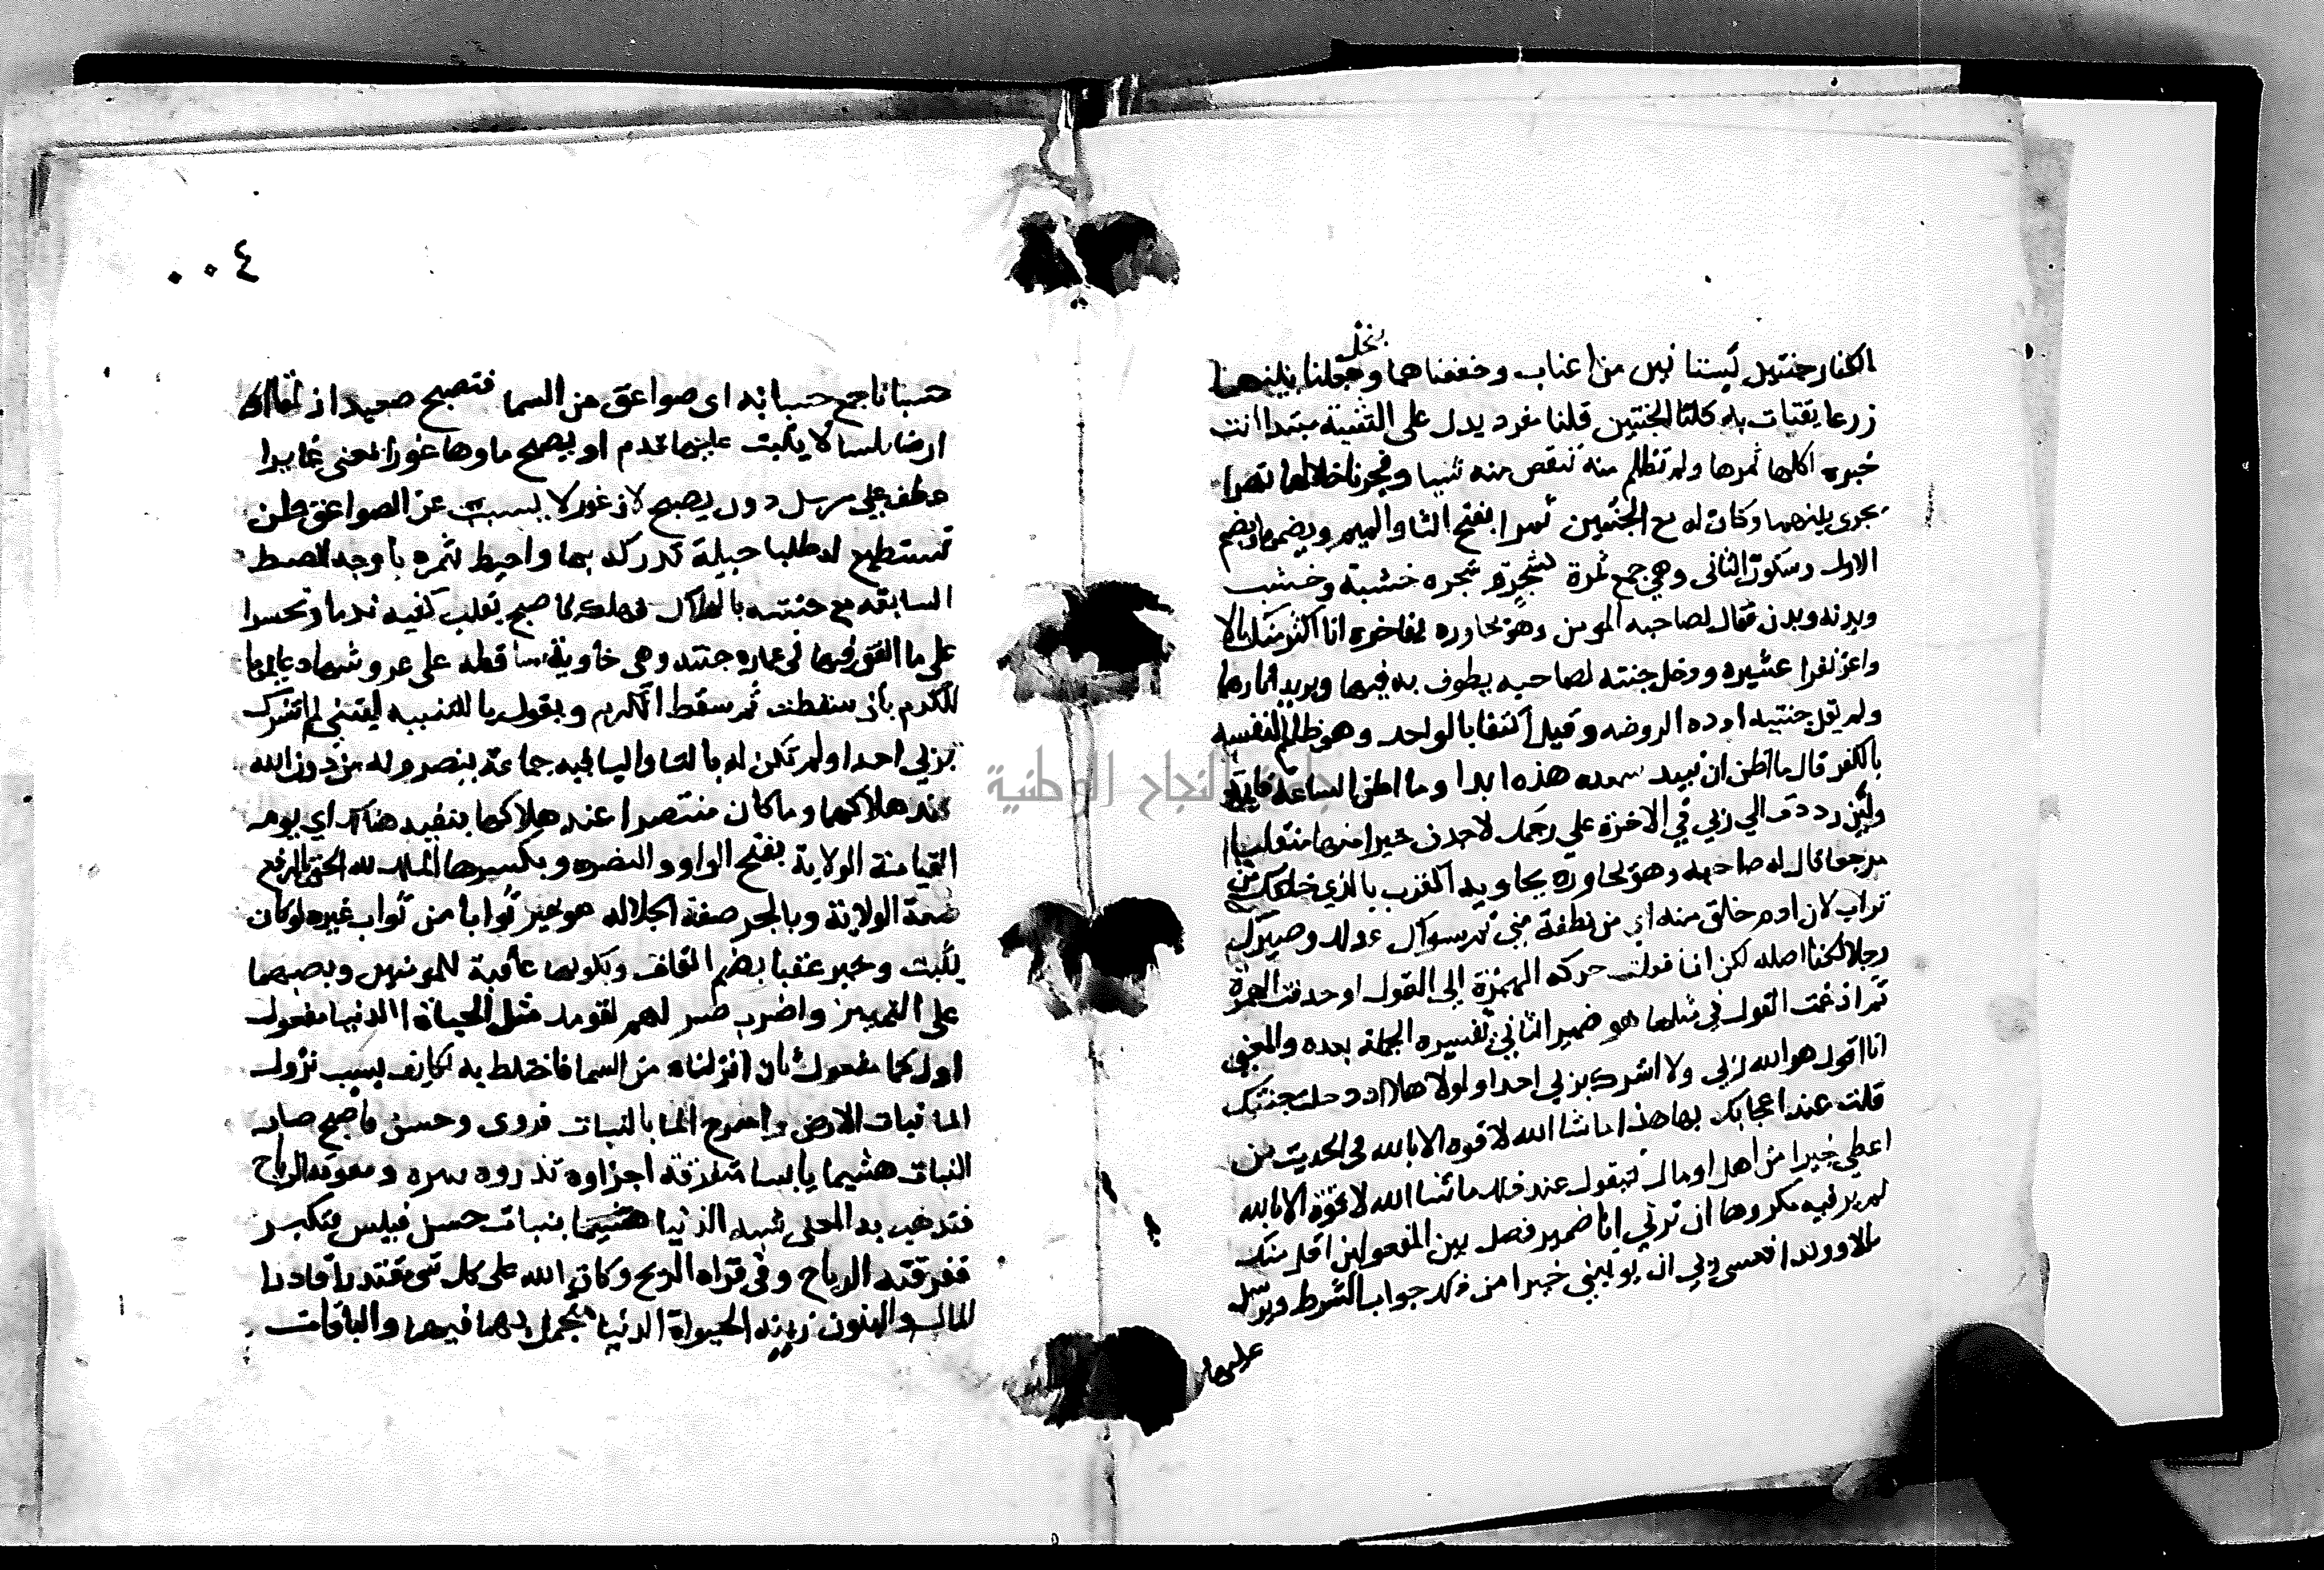 بنخل
الكفار جنتين بستانين من اعناب وحففناهما وجعلنا بينهما
زرعا يقتات به كلتا الجنتين قلنا مفرد يدل على التثنية مبتدا اتت
خبره اكلها ثمرها ولم تظلم منه تنقص منه شيا وفجرنا خلالهما نهرا
يجري بينهما وكان له مع الجنتين ثمر بفتح الثا والميم وبضمهما وبضم
الاول وسكون الثاني وهي جمع ثمرة كشجرة وشجره خشبة وخشب
وبدنه وبدن فقال لصاحبه المومن وهو يحاوره يفاخره انا اكثر منك مالا
واعز نفرا عشيره ودخل جنته لصاحبه يطوف به فيها ويريه اثمارها
ولم يقل جنتيه اراده الروضه وقيل اكتفا بالواحد وهو ظالم لنفسه
بالكفر قال ما اظن ان تبيد هذه ابدا وما اظن الساعة قايمة
ولئن رددت الي ربي في الاخرة علي زعمك لاجدن خيرا منها منقلبا
مرجعا قال له صاحبه وهو يحاوره يجاوبه اكفرت بالذي خلقك من
تراب لان ادم خلق منه اي من نطفة مني ثم سواك عدلك وصيرك
رجلا لكنا اصله لكن انا نقلت حركه الهمزة الى النون او حذفت الهمزة
ثم ادغمت النون في مثلها هو ضمير الشاني تفسيره الجملة بعده والمعنى
انا اقول هو الله ربي ولا اشرك بربي احدا ولولا هلا اذ دخلت جنتك
قلت عند اعجابك بها هذا ما شا الله لا قوه الا بالله في الحديث من
اعطي خيرا من اهل او مال فيقول عند ذلك ما شا الله لا قوة الا بالله
لم ير فيه مكروها ان ترني انا ضمير فصل بين المفعولين اقل منك
مالا وولدا فعسى ربي ان يوتيني خيرا من جنتك جواب الشرط ويرسل
عليها
٠٠٤
حسبانا جمع حسبانه اى صواعق من السما فتصبح صعيدا زلقا
ارضا ملسا لا يثبت عليها قدم او يصبح ماوها غورا بمعنى غايرا
عطف على يرسل دون يصبح لان غور لا يسبب عن الصواعق فلن
تستطيع له طلبا حيلة تدركه بها واحيط بثمره باوجه الضبط
السابقه مع جنته بالهلاك فهلكت فاصبح يقلب كفيه ندما وتحسرا
على ما انفق فيها في عماره جنته وهي خاوية ساقطه على عروشها دعايمها
للكرم بان سقطت ثم سقط الكرم ويقول يا للتنبيه ليتني لم اشرك
بربي احدا ولم تكن له بالتا واليا فيه جماعة ينصرونه من دون الله
عند هلاكها وما كان منتصرا عند هلاكها بنفسه هنالك اي يوم
القيامة الولاية بفتح الواو والنصره وبكسرها الملك لله الحق بالرفع
صفة الولاية وبالجر صفة الجلاله هو خير ثوابا من ثواب غيره لو كان
يثيب وخير عقبا بضم القاف وسكونها عاقبة للمومنين ونصبهما
على التمييز واضرب صير لهم لقومك مثل الحياة الدنيا مفعول
اول كما مفعول ثان انزلناه من السما فاختلط به تكاثف بسبب نزول
الما نبات الارض وامتزج الما بالنبات فروى وحسن فاصبح صار
النبات هشيما يابسا متفرقة اجزاوه تذروه وتفرقه الرياح
فتذهب به المعنى شبه الدنيا بنبات حسن فيبس فتكسر
ففرقته الرياح وفي قراه الريح وكان الله على كل شي مقتدرا قادرا
المال والبنون زينه الحيوة الدنيا يتجمل بهما فيها والباقيات